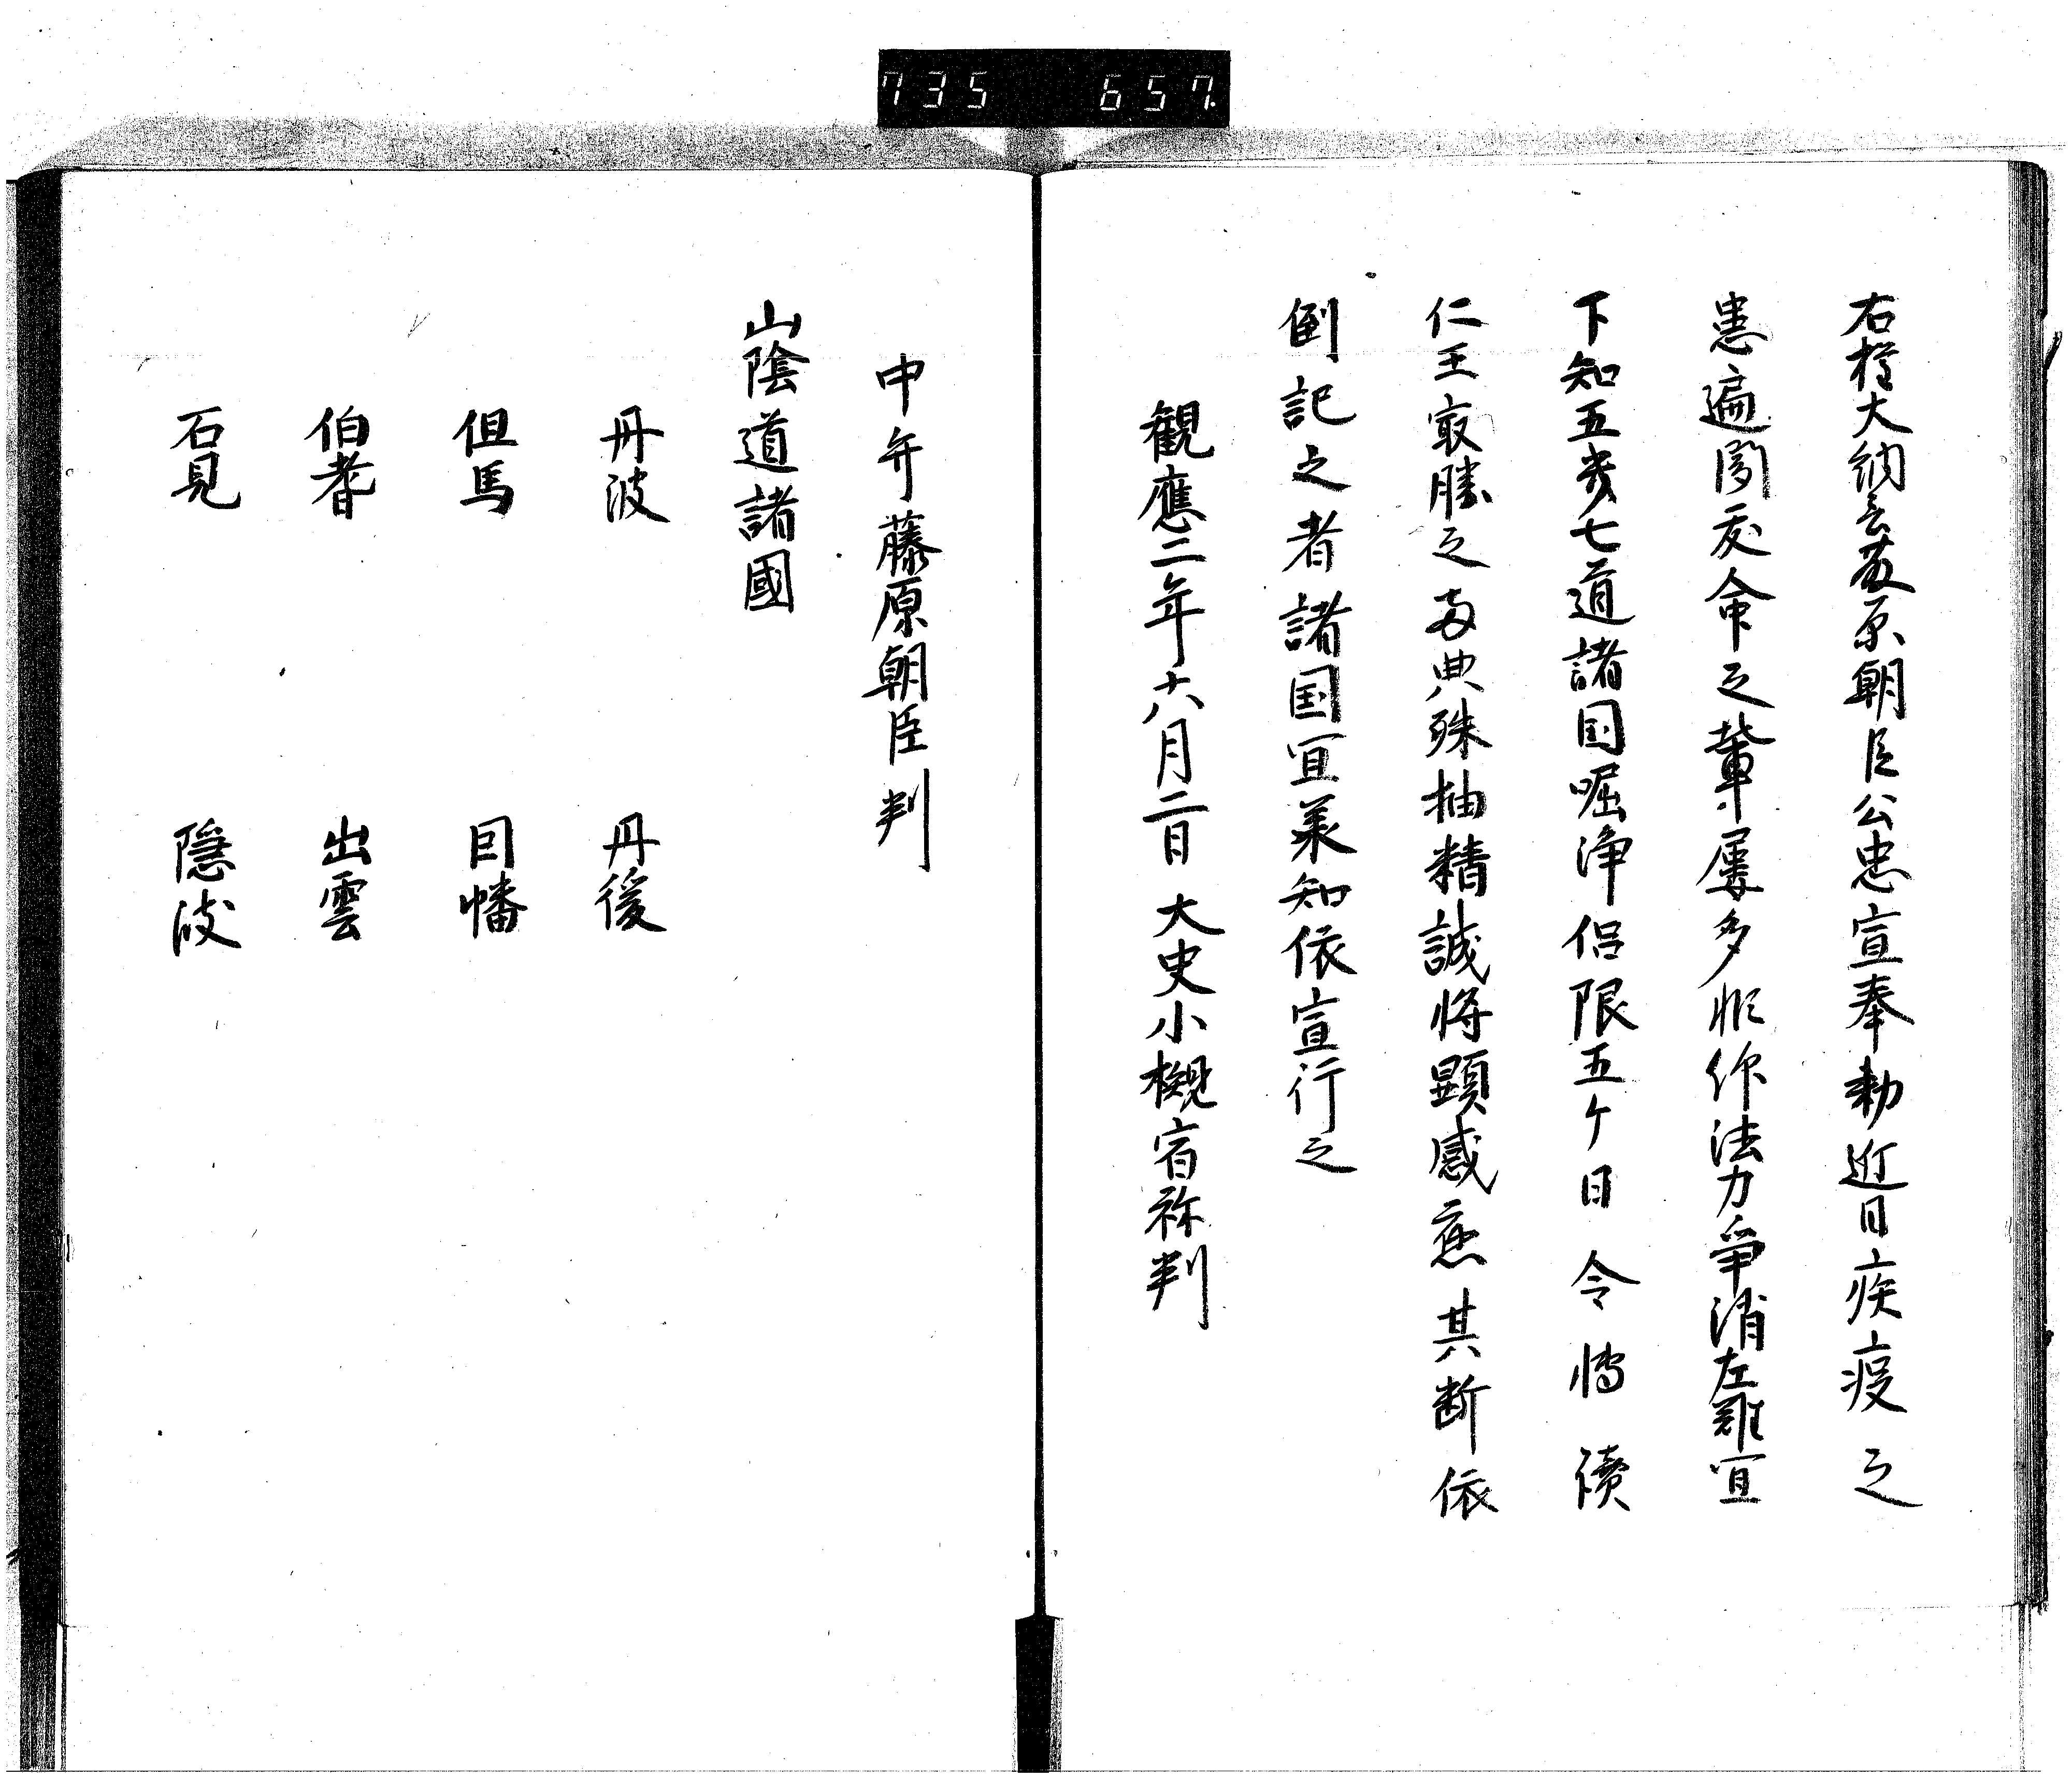 735 657
右権大納言藤原朝臣公忠宣奉勅近日疾疫之
患遍聞夭命之輩屡多非仰法力争消左難宜
下知五畿七道諸国啒浄侶限五ケ日令転読
仁王最勝之両典殊抽精誠将顕感應其断依
例記之者諸国宜承知依宣行之
觀應二年六月二日大史小槻宿祢判
中弁藤原朝臣判
山陰道諸國
丹波 丹後
但馬 因幡
伯耆 出雲
石見 隠岐